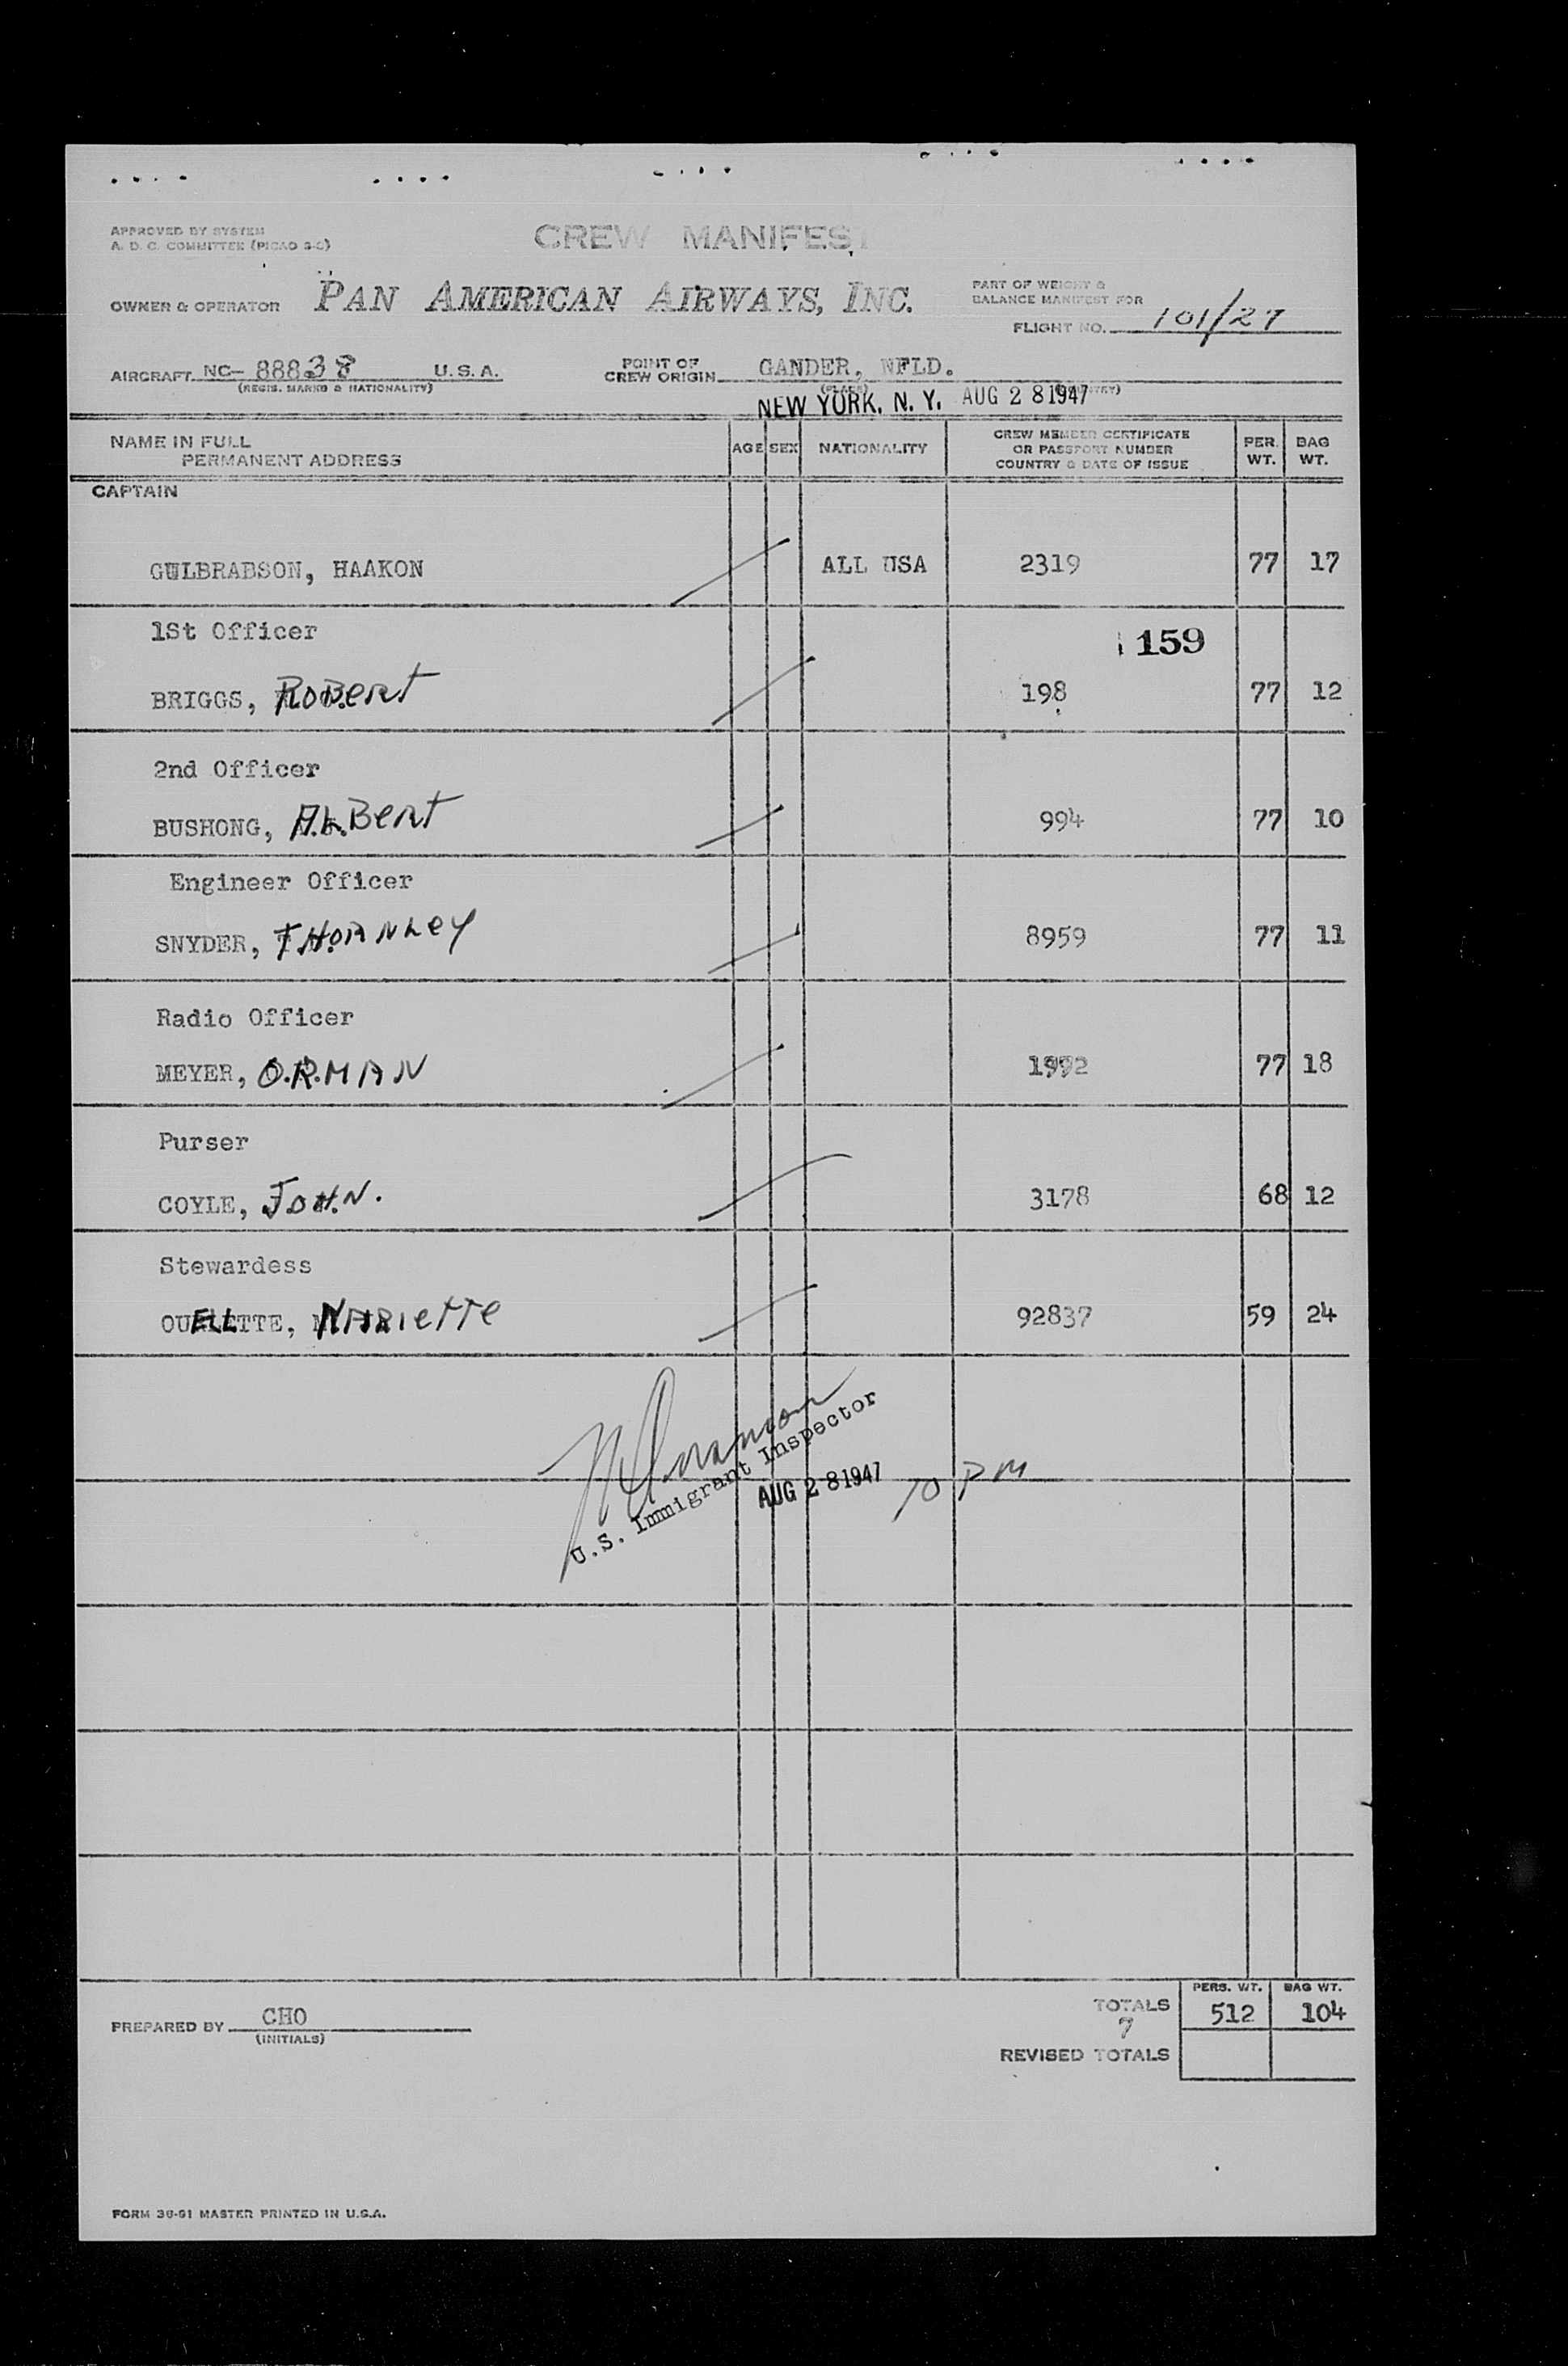 APPROVED BY SYSTEM
A. D. C. COMMITTEE (PICAO S-C)
CREW MANIFEST
OWNER & OPERATOR PAN AMERICAN AIRWAYS, INC.
PART OF WEIGHT &
BALANCE MANIFEST FOR
FLIGHT NO. 101/27
AIRCRAFT NC- 88838 U.S.A.
(REGIS. MARKS & NATIONALITY)
POINT OF
CREW ORIGIN GANDER, NFLD.
(PLACE)
NEW YORK, N. Y. AUG 28 1947
NAME IN FULL
PERMANENT ADDRESS
AGE SEX NATIONALITY
CREW MEMBER CERTIFICATE
OR PASSPORT NUMBER
COUNTRY & DATE OF ISSUE
PER. WT.
BAG WT.
CAPTAIN
HAAKON ALL USA 2319 77 17
1St Officer
159
BRIGGS, RoBert 198 77 12
2nd Officer
BUSHONG, ALBert 994 77 10
Engineer Officer
SNYDER, THORNLey 8959 77 11
Radio Officer
MEYER, O.R.MAN 77 18
Purser
COYLE, JOHN. 3178 68 12
Stewardess
OUELLETTE, MARIeTTe 92837 59 24
U.S. Immigrant Inspector
AUG 28 1947 10 PM
PERS. WT. BAG WT.
TOTALS 512 104
7
REVISED TOTALS
PREPARED BY CHO
(INITIALS)
FORM 36-91 MASTER PRINTED IN U.S.A.